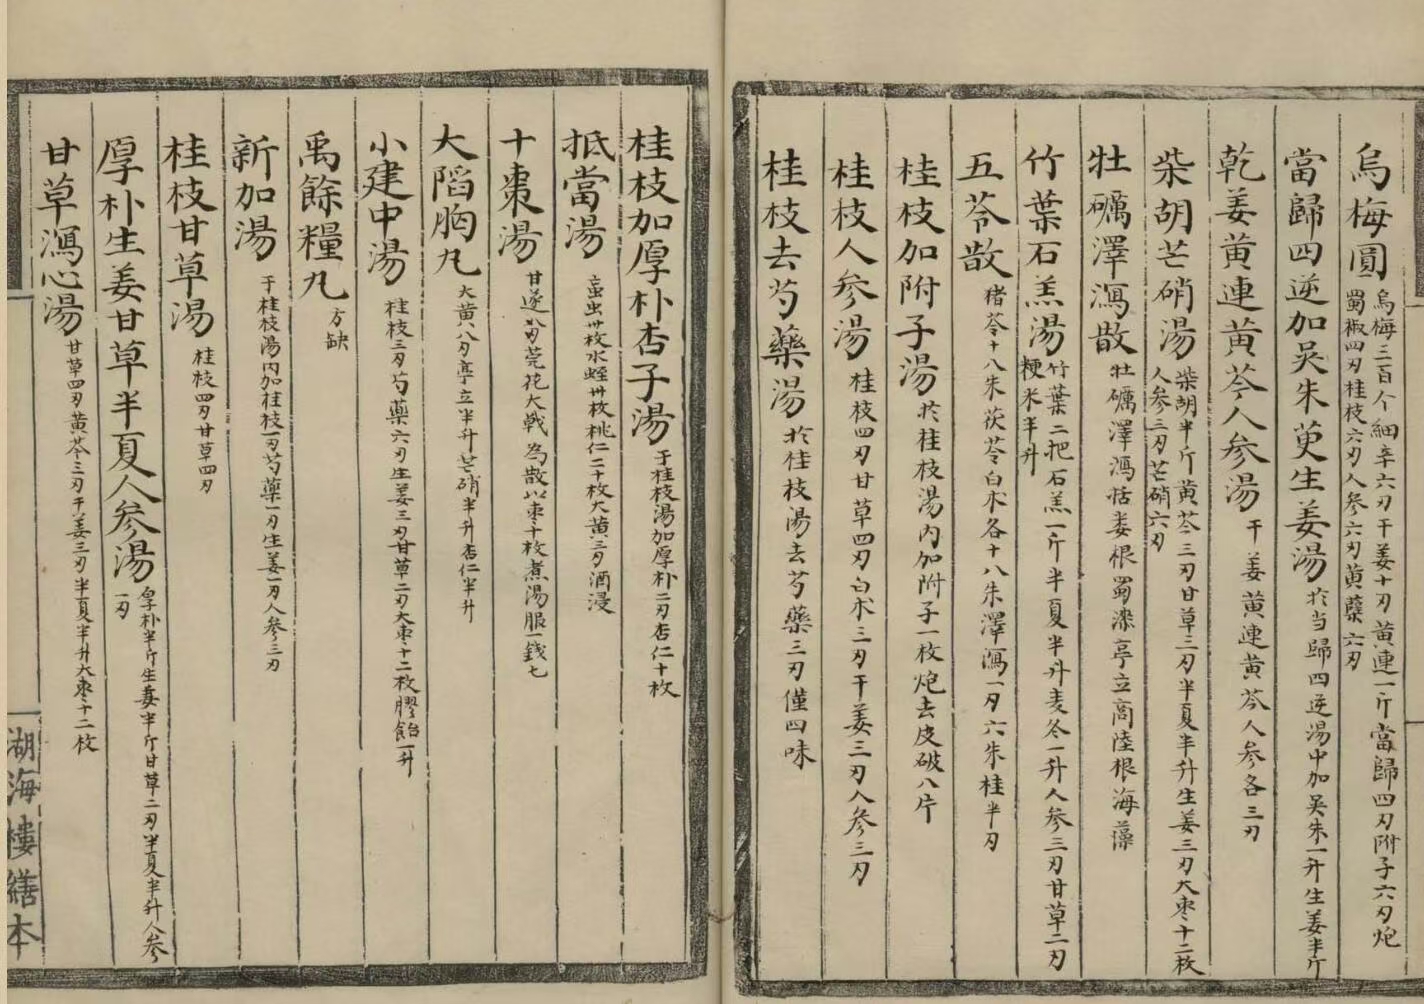 烏梅圓 烏梅三百个細辛六刃干姜十刃黄連一斤當歸四刃附子六刃炮
蜀椒四刃桂枝六刃人参六刃黄蘗六刃
當歸四逆加吳朱萸生姜湯 於当歸四逆湯中加吳朱一升生姜半斤
乾姜黄連黄芩人参湯 干姜黄連黄芩人参各三刃
柴胡芒硝湯 柴胡半斤黄芩三刃甘草三刃半夏半升生姜三刃大枣十二枚
人参三刃芒硝六刃
牡礪澤瀉散 牡礪澤瀉括蒌根蜀漆亭立商陸根海藻
竹葉石羔湯 竹葉二把石羔一斤半夏半升麦冬一升人参三刃甘草二刃
粳米半升
五苓散 猪苓十八朱茯苓白朮各十八朱澤瀉一刃六朱桂半刃
桂枝加附子湯 於桂枝湯内加附子一枚炮去皮破八片
桂枝人参湯 桂枝四刃甘草四刃白朮三刃干姜三刃人参三刃
桂枝去芍藥湯 於桂枝湯去芍藥三刃僅四味
桂枝加厚朴杏子湯 于桂枝湯加厚朴二刃杏仁十枚
抵當湯 䖟虫卅枚水蛭卅枚桃仁二十枚大黄三刃酒浸
十棗湯 甘遂芫花大戟为散以枣十枚煮湯服一錢七
大陷胸丸 大黄八刃亭立半升芒硝半升杏仁半升
小建中湯 桂枝三刃芍藥六刃生姜三刃甘草二刃大枣十二枚膠飴一升
禹餘糧丸 方缺
新加湯 于桂枝湯内加桂枝一刃芍藥一刃生姜一刃人参三刃
桂枝甘草湯 桂枝四刃甘草四刃
厚朴生姜甘草半夏人参湯 厚朴半斤生姜半斤甘草二刃半夏半升人参
一刃
甘草瀉心湯 甘草四刃黄芩三刃干姜三刃半夏半升大枣十二枚
湖海樓繕本